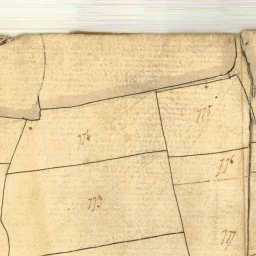 775
774
776
773
777